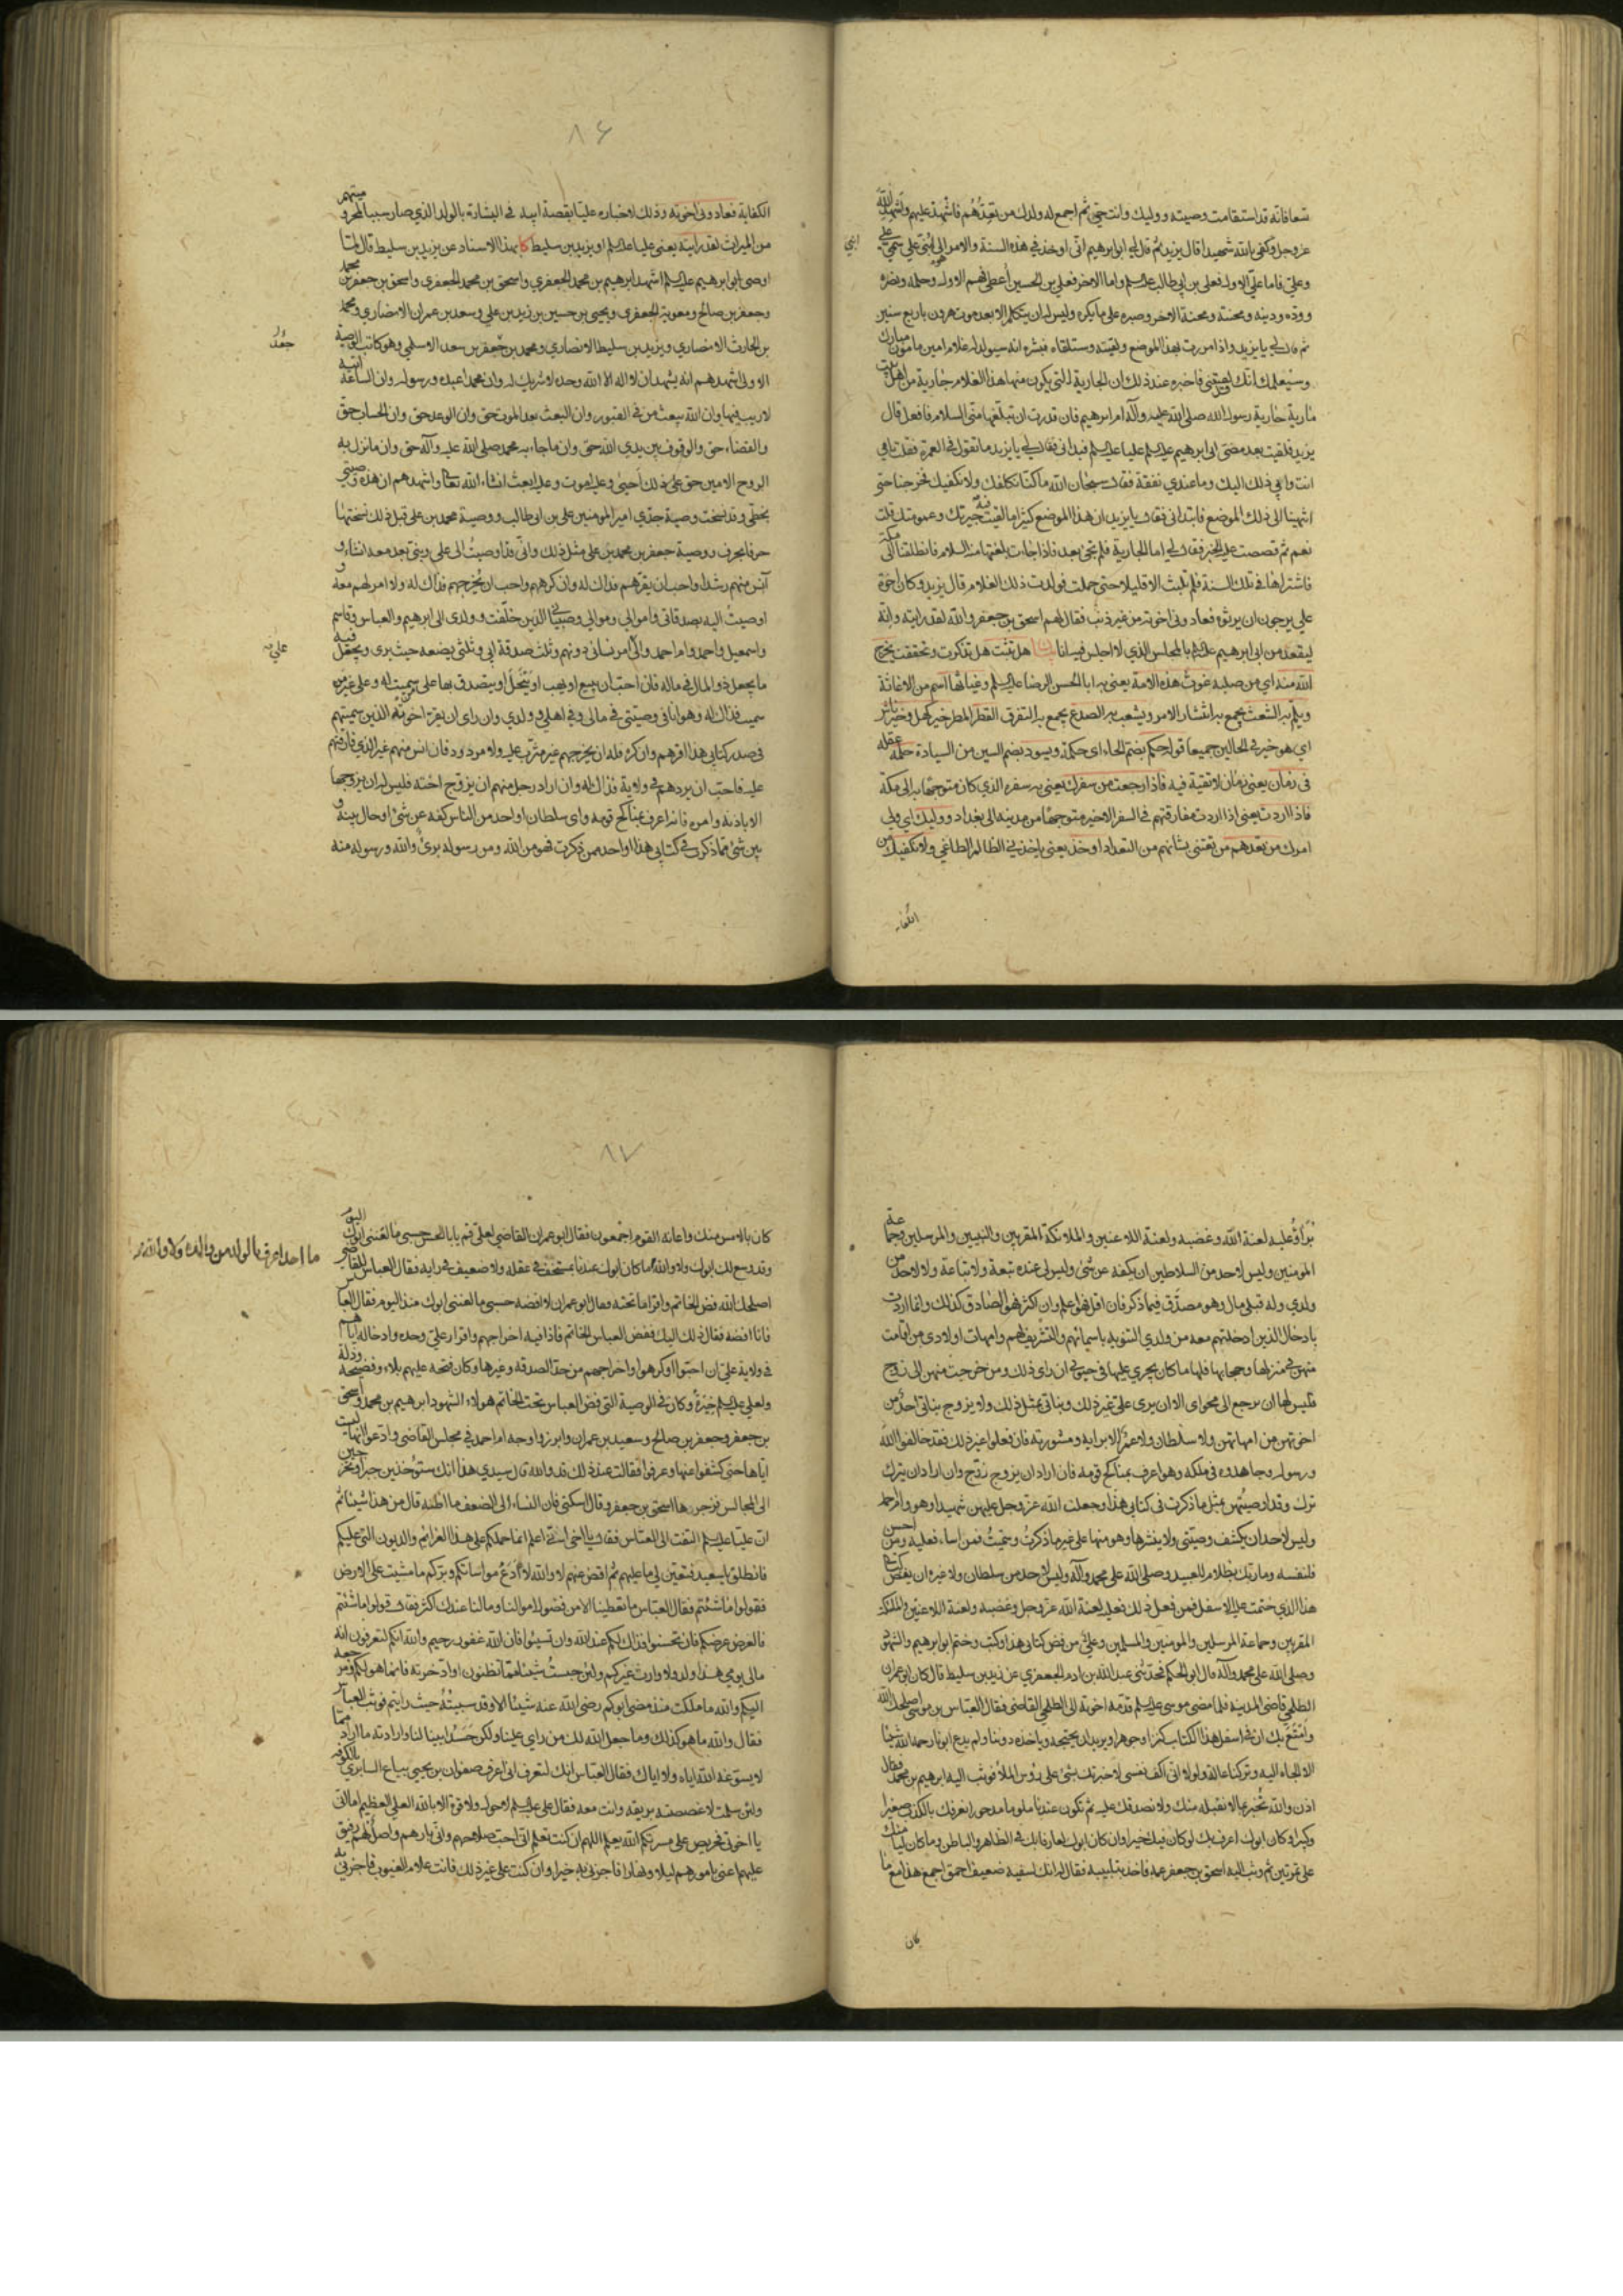 شعافانه قد استقامت وصيته ووليك وانت حي ثم اجمع له ولدك من بعدهم فاشهد عليهم واشهد الله
عز وجل وكفى بالله شهيدا قال يزيد ثم قال لي ابو ابرهيم اني اوخذ في هذه السنة والامر الى ابني علي سمي علي
وعلي فاما علي الاول فعلي بن ابي طالب عليه السلم واما الاخر فعلي بن الحسين اعطي فهم الاول وحلمه ونصره
ووده ودينه ومحنته ومحنة الاخر وصبره على ما يكره وليس له ان يتكلم الا بعد موت هرون باربع سنين
ثم قال لي يا يزيد واذا مررت بهذا الموضع ولقيته وستلقاه فبشره انه سيولد له غلام امين مامون مبارك
وسيعلمك انك لقيتني فاخبره عند ذلك ان الجارية التي يكون منها هذا الغلام جارية من اهل بيت
مارية جارية رسول الله صلى الله عليه وآله ام ابرهيم فان قدرت ان تبلغها مني السلام فافعل قال
يزيد فلقيت بعد مضي ابي ابرهيم عليه السلم عليا عليه السلم فبداني فقال لي يا يزيد ما تقول في العمرة فقلت بابي
انت وامي ذلك اليك وما عندي نفقة فقال سبحان الله ما كنا نكلفك ولا نكفيك فخرجنا حتى
انتهينا الى ذلك الموضع فابتداني فقال يا يزيد ان هذا الموضع كثيرا ما لقيت فيه جيرتك وعمومتك قلت
نعم ثم قصصت عليه الخبر فقال لي اما الجارية فلم تجئ بعد فاذا جاءت بلغتها منه السلام فانطلقنا الى مكة
فاشتراها في تلك السنة فلم تلبث الا قليلا حتى حملت فولدت ذلك الغلام قال يزيد وكان اخوة
علي يرجون ان يرثوه فعادوني اخوته من غير ذنب فقال لهم اسحق بن جعفر والله لقد رايته وانه
ليقعد من ابي ابرهيم عليه السلم بالمجلس الذي لا اجلس فيه انا بيان هل تثبت هل تذكرت وتحققت يخرج
الله منه اي من صلبه غوث هذه الامة يعني به ابا الحسن الرضا عليه السلم وغياثها اسم من الاغاثة
ويلم به الشعث يجمع به انتشار الامر ويشعب به الصدع يجمع به التفرق القطر المطر خير كهل وخير ناشئ
اي هو خير في الحالين جميعا قوله حكم بضم الحاء اي حكمة ويسود بضم السين من السيادة حلمه عقله
في زمان يعني زمان لا تقية فيه فاذا رجعت من سفرك يعني به سفره الذي كان متوجها به الى مكة
فاذا اردت يعني اذا اردت مفارقتهم في السفر الاخير متوجها من مدينته الى بغداد ووليك اي ولي
امرك من بعدهم من تعتني بشانهم من التعداد اوخذ يعني ياخذني الظالم الطاغي ولا نكفيك من
الكفاية
ابني
٨٦
الكفاية فعادوني اخوته وذلك لاختباره عليا بقصة ابيه في البشارة بالولد الذي صار سببا لمحروميتهم
من الميراث لقد رايته يعني عليا عليه السلم او يزيد بن سليط كا بهذا الاسناد عن يزيد بن سليط قال لما
اوصى ابو ابرهيم عليه السلم اشهد ابرهيم بن محمد الجعفري واسحق بن محمد الجعفري واسحق بن جعفر بن محمد
وجعفر بن صالح ومعوية الجعفري ويحيى بن حسين بن زيد بن علي وسعد بن عمران الانصاري ومحمد
بن الحارث الانصاري ويزيد بن سليط الانصاري ومحمد بن جعفر بن سعد الاسلمي وهو كاتب الوصية
الاولى اشهدهم انه يشهد ان لا اله الا الله وحده لا شريك له وان محمدا عبده ورسوله وان الساعة آتية
لا ريب فيها وان الله يبعث من في القبور وان البعث بعد الموت حق وان الوعد حق وان الحساب حق
والقضاء حق والوقوف بين يدي الله حق وان ما جاء به محمد صلى الله عليه وآله حق وان ما نزل به
الروح الامين حق على ذلك احيى وعليه اموت وعليه ابعث انشاء الله تعالى واشهدهم ان هذه وصيتي
بخطي وقد نسخت وصية جدي امير المومنين علي بن ابي طالب ووصية محمد بن علي قبل ذلك نسختها
حرفا بحرف ووصية جعفر بن محمد بن علي مثل ذلك واني قد اوصيت الى علي وبني بعد معه انشاء و
آنس منهم رشدا واحب ان يقرهم فذاك له وان كرههم واحب ان يخرجهم فذاك له ولا امر لهم معه و
اوصيت اليه بصدقاتي واموالي وموالي وصبياني الذين خلفت وولدي الى ابرهيم والعباس وقاسم
واسمعيل واحمد وام احمد والى علي امر نسائي دونهم وثلث صدقة ابي وثلثي يضعه حيث يرى ويجعل فيه
ما يجعل ذو المال في ماله فان احب ان يبيع او يهب او ينحل او يتصدق بها على من سميت له وعلى غير من
سميت فذاك له وهو انا في وصيتي في مالي وفي اهلي وولدي وان راى ان يقر اخوته الذين سميتهم
في صدر كتابي هذا اقرهم وان كره فله ان يخرجهم غير مثرب عليه ولا مردود فان انس منهم غير الذي فارقتهم
عليه فاحب ان يردهم في ولاية فذاك له وان اراد رجل منهم ان يزوج اخته فليس له ان يزوجها
الا باذنه وامره فانه اعرف بمناكح قومه واي سلطان او احد من الناس كفه عن شئ او حال بينه و
بين شئ مما ذكرت في كتابي هذا او احد ممن ذكرت فهو من الله ومن رسوله برئ والله ورسوله منه
جعد
برآؤ عليه لعنة الله وغضبه ولعنة اللاعنين والملائكة المقربين والنبيين والمرسلين وجماعة
المومنين وليس لاحد من السلاطين ان يكفه عن شئ وليس لي عنده تبعة ولا تباعة ولا لاحد من
ولدي وله قبلي مال وهو مصدق فيما ذكر فان اقل فهو اعلم وان اكثر فهو الصادق كذلك وانما اردت
بادخال الذين ادخلتهم معه من ولدي التنويه باسمائهم والتشريف لهم وامهات اولادي من اقامت
منهن في منزلها وحجابها فلها ما كان يجري عليها في حيوتي ان راى ذلك ومن خرجت منهن الى زوج
فليس لها ان ترجع الى محواي الا ان يرى علي غير ذلك وبناتي بمثل ذلك ولا يزوج بناتي احد من
اخوتهن من امهاتهن ولا سلطان ولا عم الا برايه ومشورته فان فعلوا غير ذلك فقد خالفوا الله
ورسوله وجاهدوه في ملكه وهو اعرف بمناكح قومه فان اراد ان يزوج زوج وان اراد ان يترك
ترك وقد اوصيتهن بمثل ما ذكرت في كتابي هذا وجعلت الله عز وجل عليهن شهيدا وهو وام احمد
وليس لاحد ان يكشف وصيتي ولا ينشرها وهو منها على غير ما ذكرت وسميت فمن اساء فعليه ومن احسن
فلنفسه وما ربك بظلام للعبيد وصلى الله على محمد وآله وليس لاحد من سلطان ولا غيره ان يفض كتابي
هذا الذي ختمت عليه الاسفل فمن فعل ذلك فعليه لعنة الله عز وجل وغضبه ولعنة اللاعنين والملئكة
المقربين وجماعة المرسلين والمومنين والمسلمين وعلى من فض كتابي هذا وكتب وختم ابو ابرهيم والشهود
وصلى الله على محمد وآله قال ابو الحكم فحدثني عبد الله بن ادم الجعفري عن يزيد بن سليط قال كان ابو عمران
الطلحي قاضي المدينة فلما مضى موسى عليه السلم قدمه اخوته الى الطلحي القاضي فقال العباس بن موسى اصلحك الله
وامتع بك ان في اسفل هذا الكتاب كنزا وجوهرا ويريد ان يحتجبه وياخذه دوننا ولم يدع ابونا رحمه الله شيئا
الا الجاه اليه وتركنا عالة ولولا اني اكف نفسي لاخبرتك بشئ على رؤس الملأ فوثب اليه ابرهيم بن محمد فقال
اذن والله تخبر بما لا نقبله منك ولا نصدقك عليه ثم تكون عندنا ملوما مدحورا نعرفك بالكذب صغيرا
وكبيرا وكان ابوك اعرف بك لو كان فيك خيرا وان كان ابوك لعارفا بك في الظاهر والباطن وما كان ليامنك
على تمرتين ثم وثب اليه اسحق بن جعفر عمه فاخذ بتلبيبه فقال له انك لسفيه ضعيف احمق اجمع هذا مع ما
كان
٨٧
كان بالامس منك واعانه القوم اجمعون فقال ابو عمران القاضي لعلي قم يا ابا الحسن حسبي ما لعنني ابوك اليوم
وقد وسع لك ابوك ولا والله ما كان ابوك عندنا بمستخف في عقله ولا ضعيف في رايه فقال العباس للقاضي
اصلحك الله فض الخاتم واقرا ما تحته فقال ابو عمران لا افضه حسبي ما لعنني ابوك منذ اليوم فقال العباس
فانا افضه فقال ذلك اليك ففض العباس الخاتم فاذا فيه اخراجهم واقرار علي وحده وادخاله اياهم
في ولاية علي ان احبوا او كرهوا واخراجهم من حد الصدقة وغيرها وكان فتحه عليهم بلاء وفضيحة وذلة
ولعلي عليه السلم خيرة وكان في الوصية التي فض العباس تحت الخاتم هولاء الشهود ابرهيم بن محمد واسحق
بن جعفر وجعفر بن صالح وسعيد بن عمران وابرزوا وجه ام احمد في مجلس القاضي وادعوا انها ليست
اياها حتى كشفوا عنها وعرفوها فقالت عند ذلك قد والله قال سيدي هذا انك ستؤخذين جبرا وتخرجين
الى المجالس فزجرها اسحق بن جعفر وقال اسكتي فان النساء الى الضعف ما اظنه قال من هذا شيئا ثم
ان عليا عليه السلم التفت الى العباس فقال يا اخي اني اعلم انما حملكم على هذا الغرائم والديون التي عليكم
فانطلق يا سعيد فتعين لي ما عليهم ثم اقض عنهم لا والله لا ادع مواساتكم وبركم ما مشيت على الارض
فقولوا ما شئتم فقال العباس ما تعطينا الا من فضول اموالنا وما لنا عندك اكثر فقال قولوا ما شئتم
فالعرض عرضكم فان تحسنوا فذاك لكم عند الله وان تسيؤا فان الله غفور رحيم والله انكم لتعرفون انه
مالي يومي هذا ولد ولا وارث غيركم ولئن حبست شيئا مما تظنون او ادخرته فانما هو لكم ومرجعه
اليكم والله ما ملكت منذ مضى ابوكم رضي الله عنه شيئا الا وقد سيبته حيث رايتم فوثب العباس
فقال والله ما هو كذلك وما جعل الله لك من راي علينا ولكن حسد ابينا لنا وارادته ما اراد مما
لا يسوغه الله اياه ولا اياك فقال العباس انك لتعرف اني اعرف صفوان بن يحيى بياع السابري بالكوفة
ولئن سلمت لاغصصنه بريقه وانت معه فقال علي عليه السلم لا حول ولا قوة الا بالله العلي العظيم اما اني
يا اخوتي فحريص على مسرتكم الله يعلم اللهم ان كنت تعلم اني احب صلاحهم واني بار بهم واصل لهم رفيق
عليهم اعني بامورهم ليلا ونهارا فاجزني به خيرا وان كنت على غير ذلك فانت علام الغيوب فاجزني به